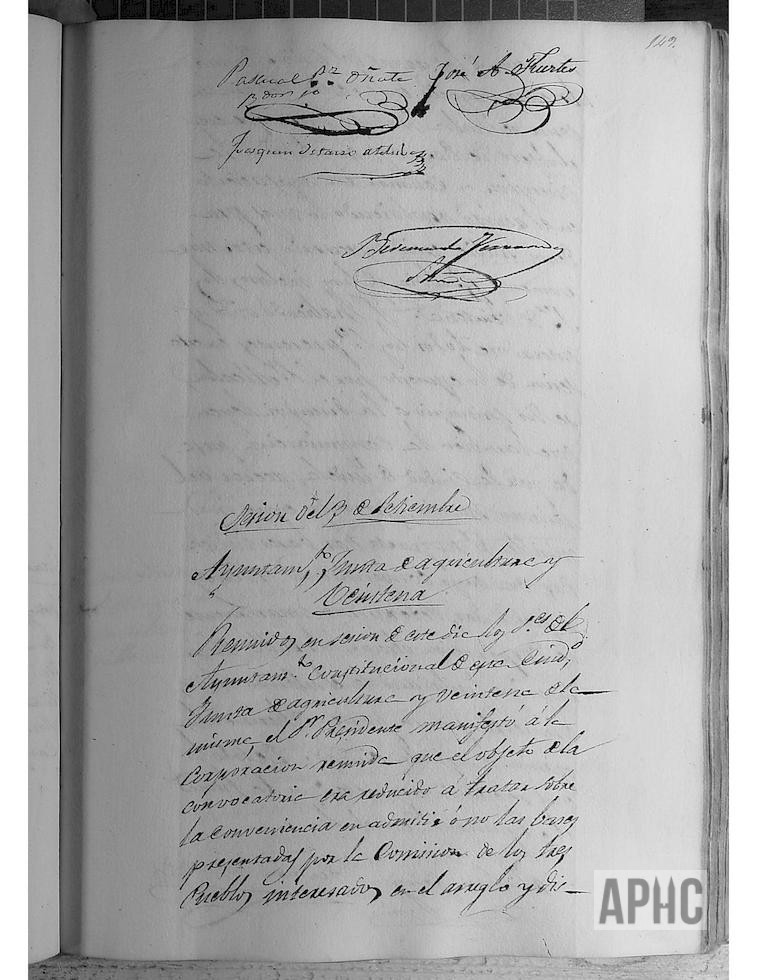 149.
Pascual Pz Oñate José A. Fuertes
Joaquin
Sesion del 3 de Setiembre
Ayuntam.to, Junta de agricultura y
Veintena
Reunidos en sesion de este dia los S.es del
Ayuntam.to Constitucional de esta Ciud,
Junta de agricultura y veintena de la
misma, el Sr Presidente manifestó á la
Corporacion reunida que el objeto de la
convocatoria era reducido á tratar sobre
la conveniencia en admitir ó no las bases
presentadas por la Comision de los tres
Pueblos interesados en el arreglo y dis-
APHC